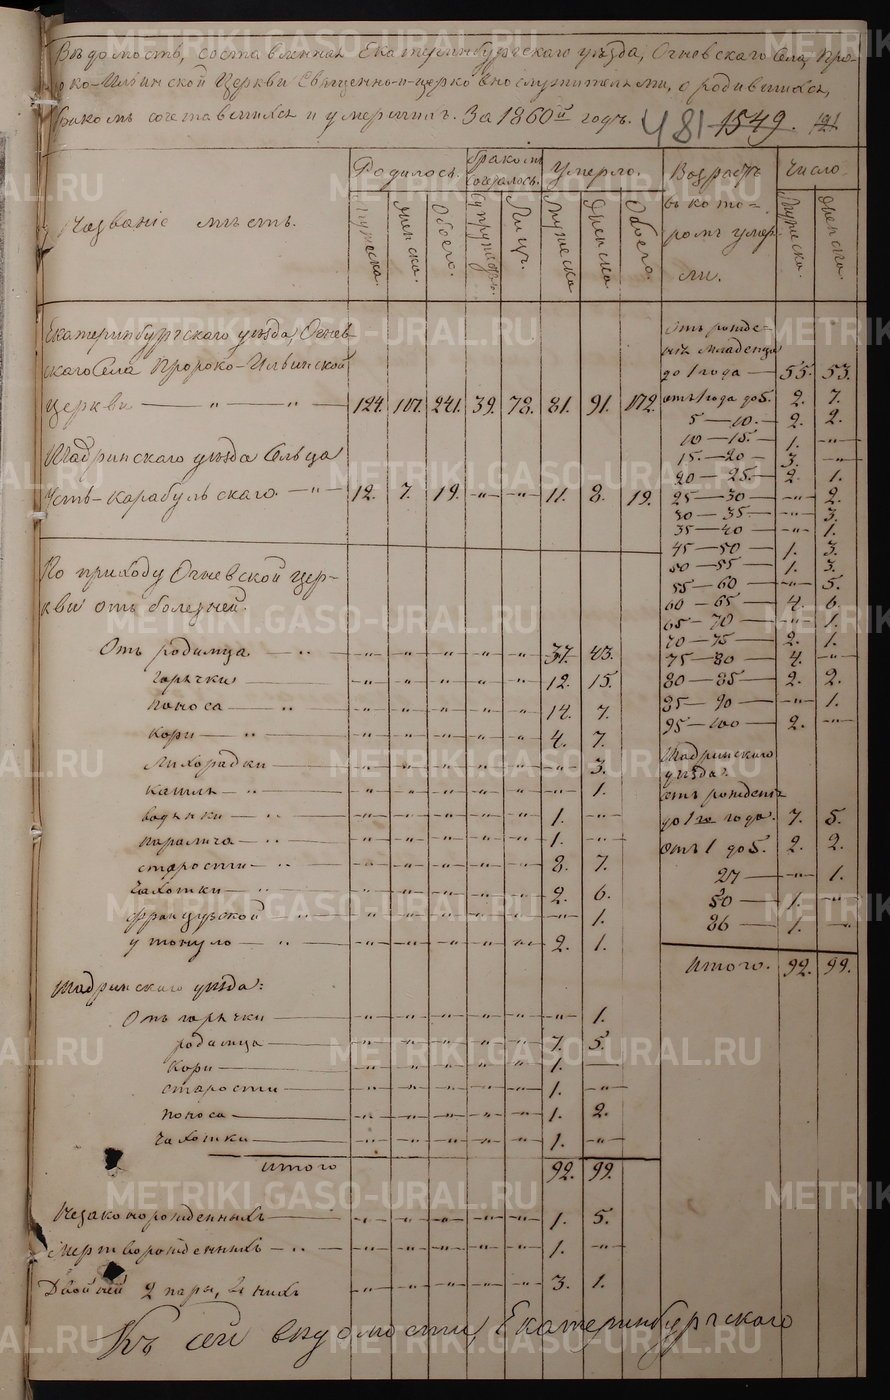 Вѣдомость, составленная Екатеринбургскаго уѣзда, Огневскаго Села, Про-
око-Ильинской Церкви Священно-и-церковнослужителями, о родившихся,
бракомъ сочетавшихся и умершихъ. За 1860й годъ. 481 1549. 121
Названіе мѣстъ.
Родилось. бракомъ сочеталось. Умерло. Возрастъ въ кото- ромъ умер- ли. Число.
Мужеска. Женска. Обоего. супружествъ. Лицъ. Мужеска Женска Обоего. Мужеска. Женскаго.
Екатеринбургскаго уѣзда, Огнев-
скаго Села Пророко-Ильинской
Церкви — „ — „ — 124. 117. 241. 39. 78. 81. 91. 172.
Шадринскаго уѣзда Сельца
Усть-карабульскаго — „ — 12. 7. 19. „ „ 11. 8. 19.
По приходу Огневской цер-
кви отъ болезней.
Отъ родимца — „ „ „ „ „ 37. 43.
горячки — „ „ „ „ „ 12. 15.
поноса — „ „ „ „ „ 14. 7.
кори — „ „ „ „ „ 4. 7.
лихорадки — „ „ „ „ „ „ 3.
кашля — „ „ „ „ „ „ 1.
водянки — „ „ „ „ „ 1. „
паралича — „ „ „ „ „ 1. „
старости — „ „ „ „ „ 8. 7.
чахотки — „ „ „ „ „ 2. 6.
французской — „ „ „ „ „ „ 1.
утонуло — „ „ „ „ „ 2. 1.
Шадринскаго уѣзда:
Отъ горячки — „ „ „ „ „ „ 1.
родимца — „ „ „ „ „ 7. 5.
кори — „ „ „ „ „ 1. —
старости — „ „ „ „ „ 1. „
поноса — „ „ „ „ „ 1. 2.
чахотки — „ „ „ „ „ 1. „
итого 92. 99.
Незаконорожденныхъ — „ „ „ „ „ 1. 5.
Мертворожденныхъ — „ „ „ „ „ 1. „
Двойней 2 пары, въ нихъ „ „ „ „ „ 3. 1.
отъ рожде-
нія младенца
до 1 года — 55. 53.
отъ 1 года до 5. 2. 7.
5—10. — 2. 2.
10—15. — 1. „
15.—20 — 3. „
20—25. — 2. 1.
25—30 — „ 2.
30—35. — „ 3.
35—40 — „ 1.
45—50 — 1. 3.
50—55 — 1. 3.
55—60 — „ 5.
60—65 — 4. 6.
65—70 — „ 1.
70—75 — 2. 1.
75—80 — 4. „
80—85 — 2. 2.
85—90 — „ 1.
95—100 — 2. „
Шадринскаго
уѣзда.
отъ рожденія
до 1го года. 7. 5.
отъ 1 до 5. 2. 2.
27 — „ 1.
50 — 1. „
86 — 1. „
Итого. 92. 99.
Къ сей вѣдомости, Екатеринбургскаго
METRIKI.GASO-URAL.RU